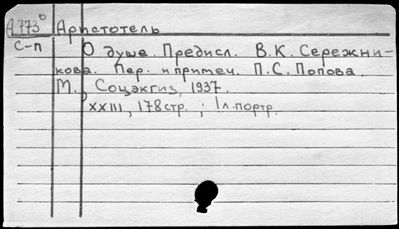 А 773⁰ Аристотель
С-п О душе. Предисл. В.К. Сережни-
кова. Пер. и примеч. П.С. Попова.
М., Соцэкгиз, 1937.
XXIII, 178 стр. ; 1 л. портр.